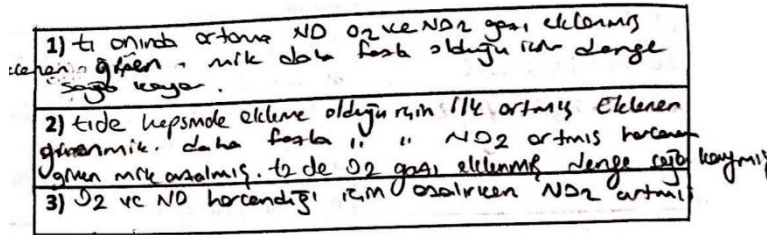 1) t₁ anında ortama NO O2 ve NO2 gazı eklenmiş
giren mik daha fazla olduğu için denge
sağa kayar.
2) t1de hepsinde ekleme olduğu için ilk artmış Eklenen
giren mik. daha fazla " " NO2 artmış harcanan
giren mik azalmış. t2 de O2 gazı eklenmiş denge sağa kaymış
3) O2 ve NO harcandığı için azalırken NO2 artmış